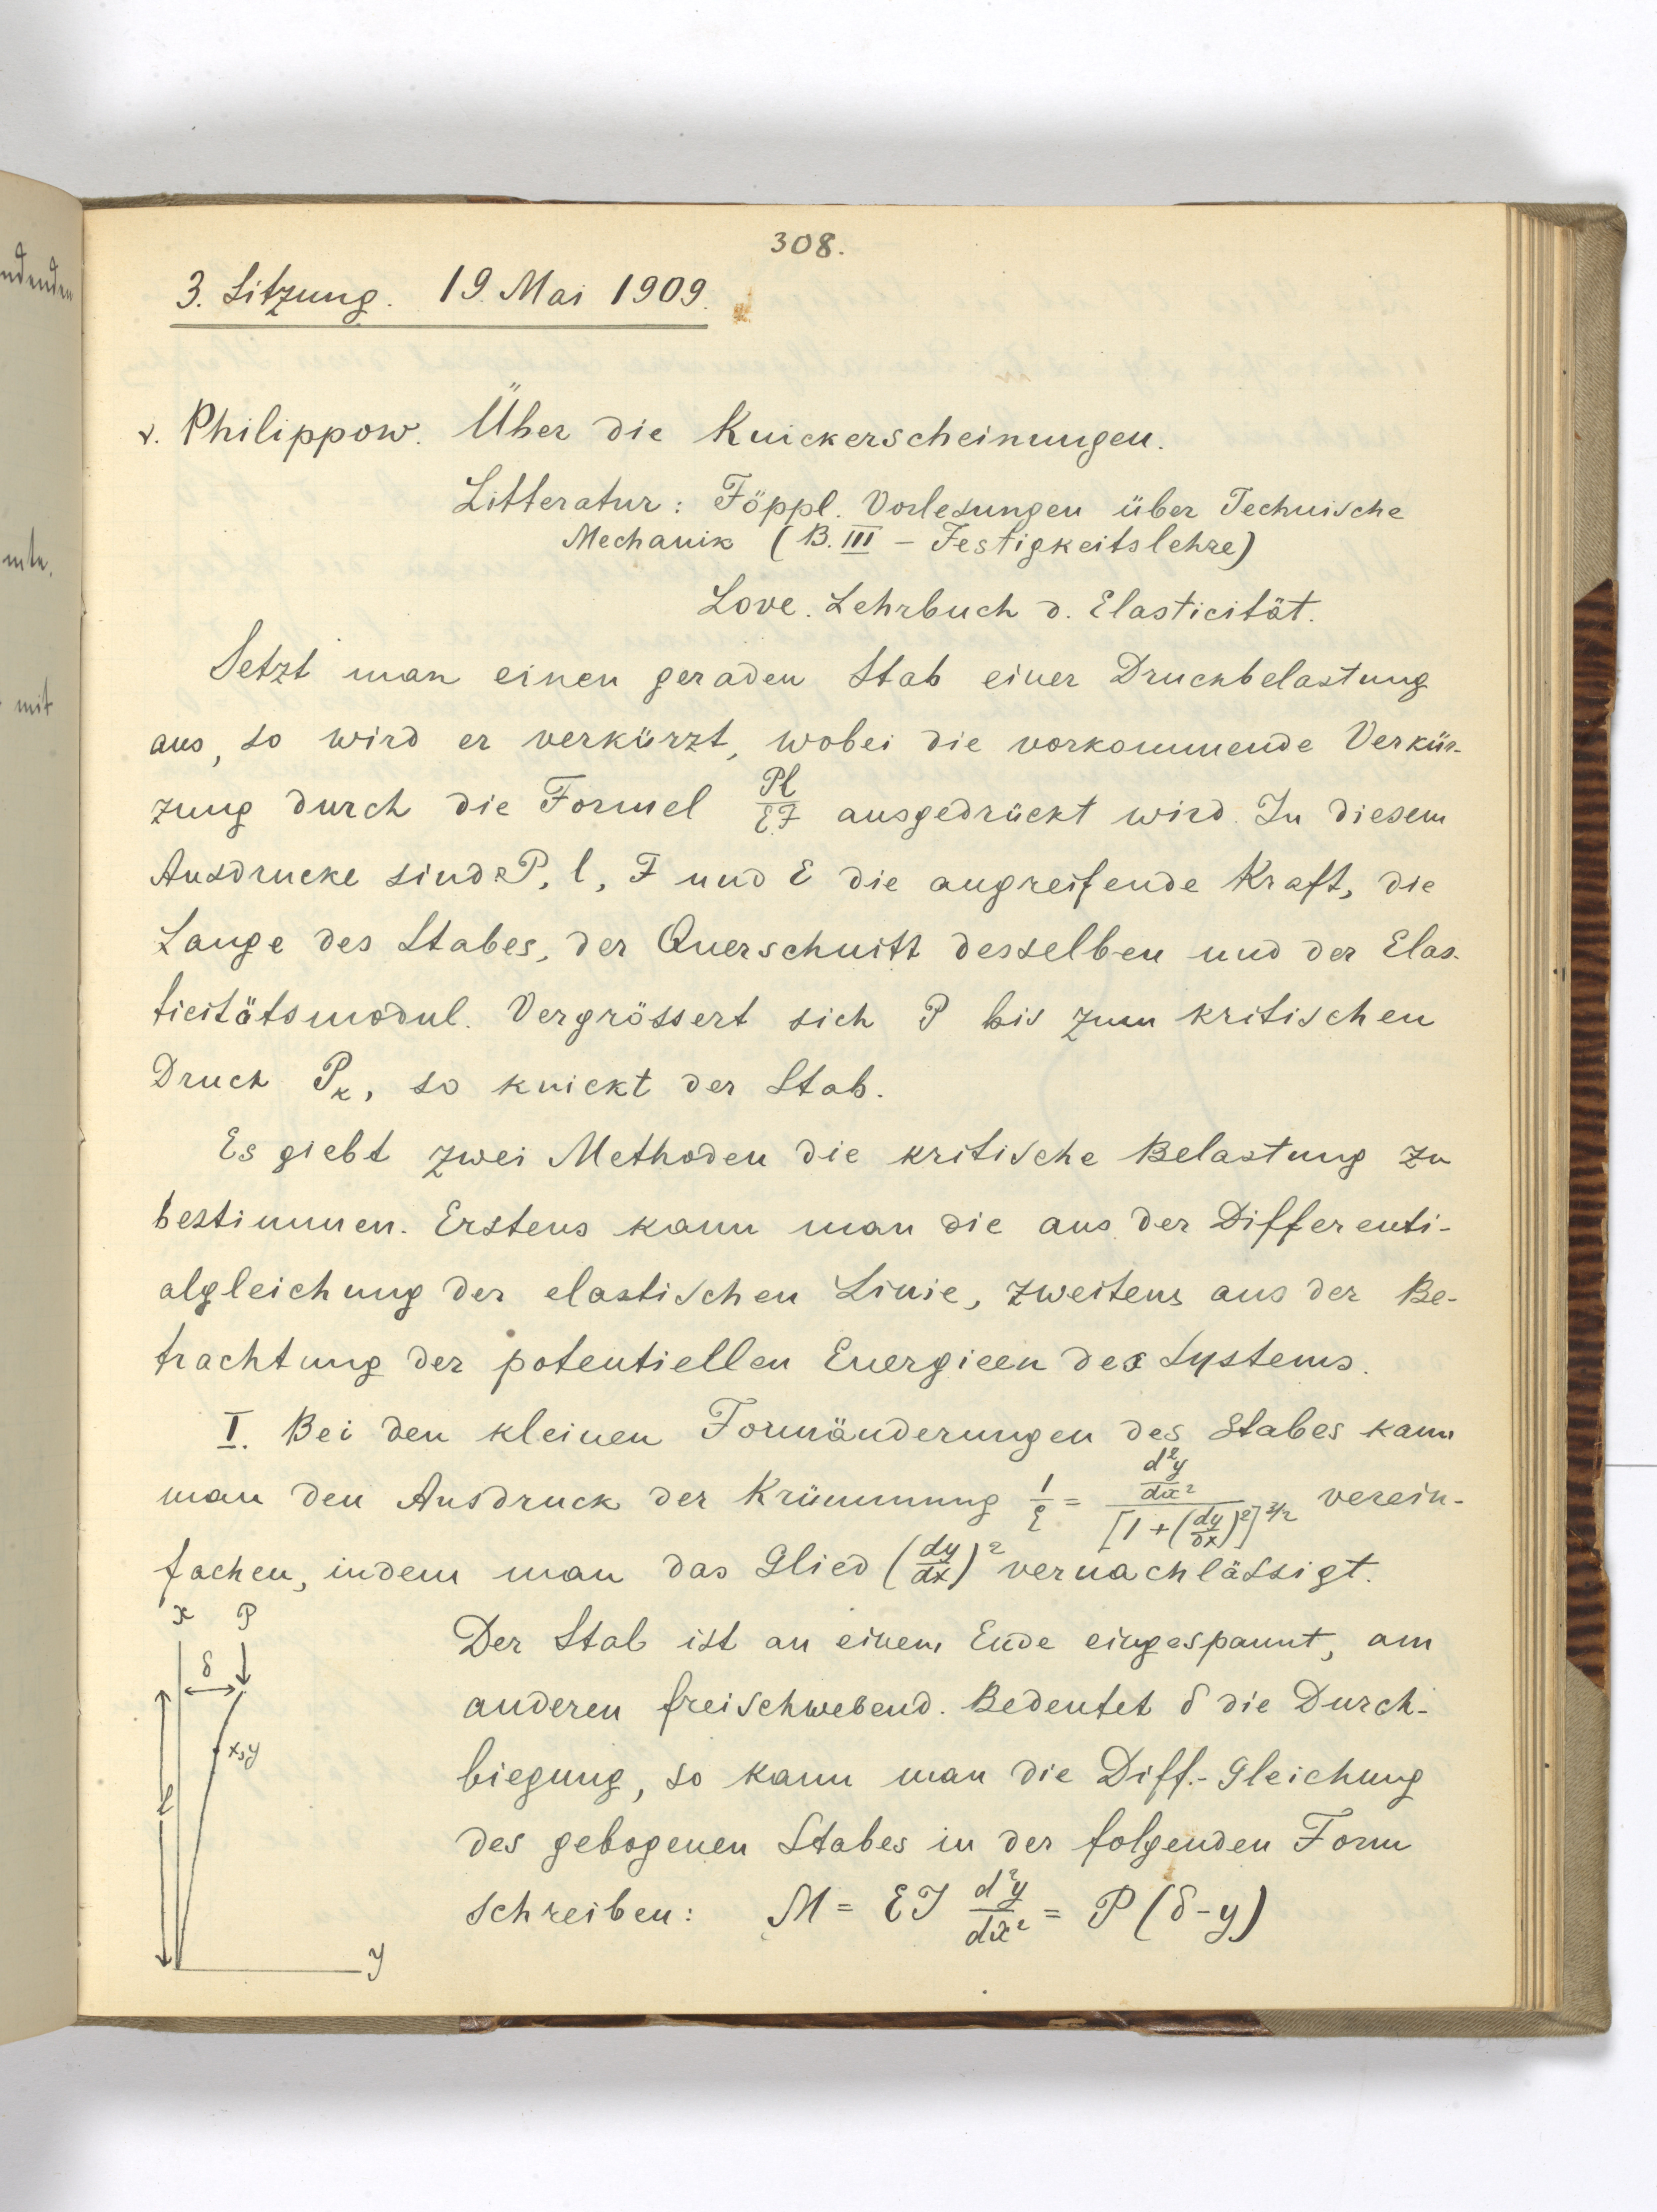 308.
3. Sitzung. 19. Mai 1909.
v. Philippow. Über die Knickerscheinungen.
Litteratur: Föppl. Vorlesungen über Technische
Mechanik (B. III – Festigkeitslehre)
Love. Lehrbuch d. Elasticität.
Setzt man einen geraden Stab einer Druckbelastung
aus, so wird er verkürzt, wobei die vorkommende Verkür-
zung durch die Formel Pl/EF ausgedrückt wird. In diesem
Ausdrucke sind P, l, F und E die angreifende Kraft, die
Lange des Stabes, der Querschnitt desselben und der Elas-
ticitätsmodul. Vergrössert sich P bis zum kritischen
Druck Pₖ, so knickt der Stab.
Es giebt zwei Methoden die kritische Belastung zu
bestimmen. Erstens kann man die aus der Differenti-
algleichung der elastischen Linie, zweitens aus der Be-
trachtung der potentiellen Energieen des Systems.
I. Bei den kleinen Formänderungen des Stabes kann
man den Ausdruck der Krümmung 1/ρ = (d²y/dx²)/[1 + (dy/dx)²]^3/2 verein-
fachen, indem man das Glied (dy/dx)² vernachlässigt.
x P
δ
x,y
l
y
Der Stab ist an einem Ende eingespannt, am
anderen freischwebend. Bedeutet δ die Durch-
biegung, so kann man die Diff.-Gleichung
des gebogenen Stabes in der folgenden Form
schreiben: M = EJ d²y/dx² = P(δ-y)
ndenden
mte.
mit